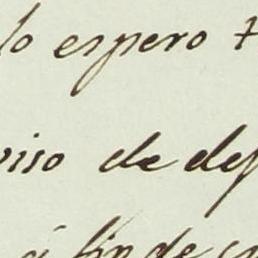 lo espero
viso de
á fin de